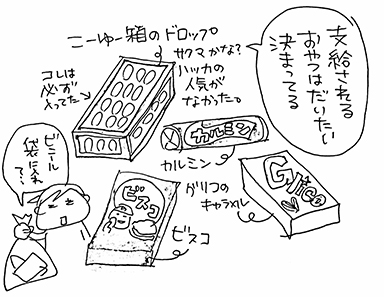 支給される
おやつはだいたい
決まってる
こーゆー箱のドロップ。
サクマかな?
ハッカの
人気が
なかった。
コレは
必ず
入ってた
カルミン
カルミン
Glico
グリコの
キャラメル
ビスコ
ビスコ
ビニール
袋に入れ
て…